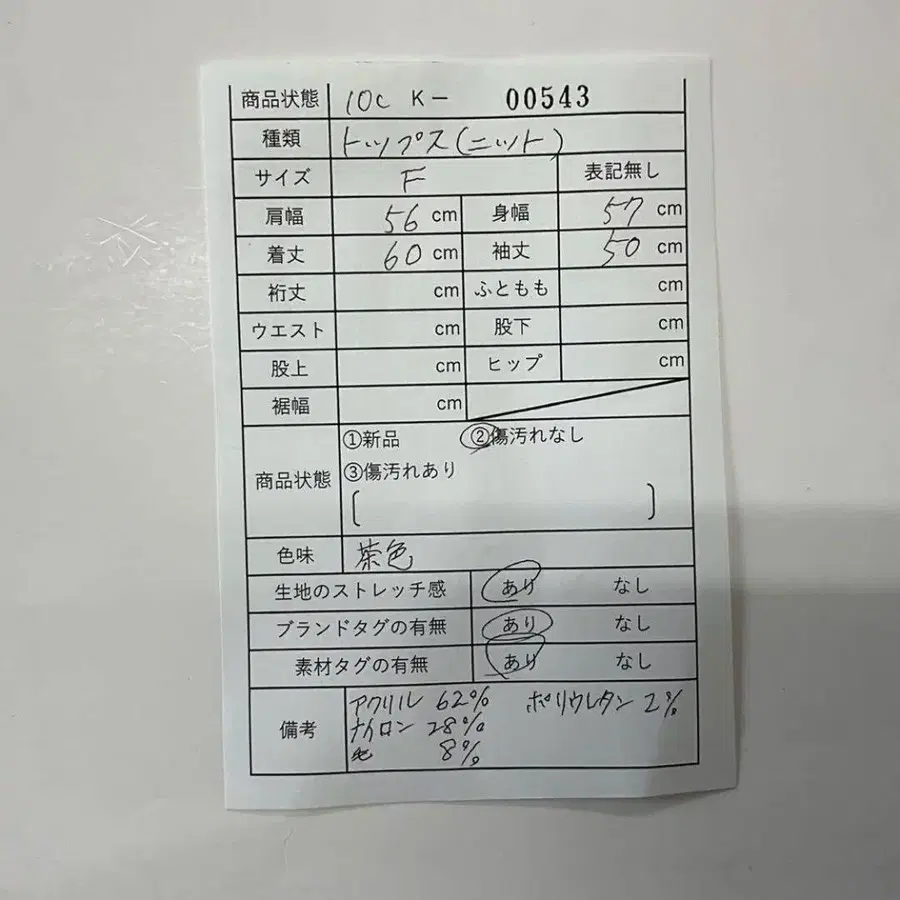 商品状態 10C K- 00543
種類 トップス(ニット)
サイズ F 表記無し
肩幅 56 cm 身幅 57 cm
着丈 60 cm 袖丈 50 cm
裄丈 cm ふともも cm
ウエスト cm 股下 cm
股上 cm ヒップ cm
裾幅 cm
商品状態 ①新品 ②傷汚れなし
③傷汚れあり
[ ]
色味 茶色
生地のストレッチ感 あり なし
ブランドタグの有無 あり なし
素材タグの有無 あり なし
備考 アクリル 62% ポリウレタン 2%
ナイロン 28%
毛 8%